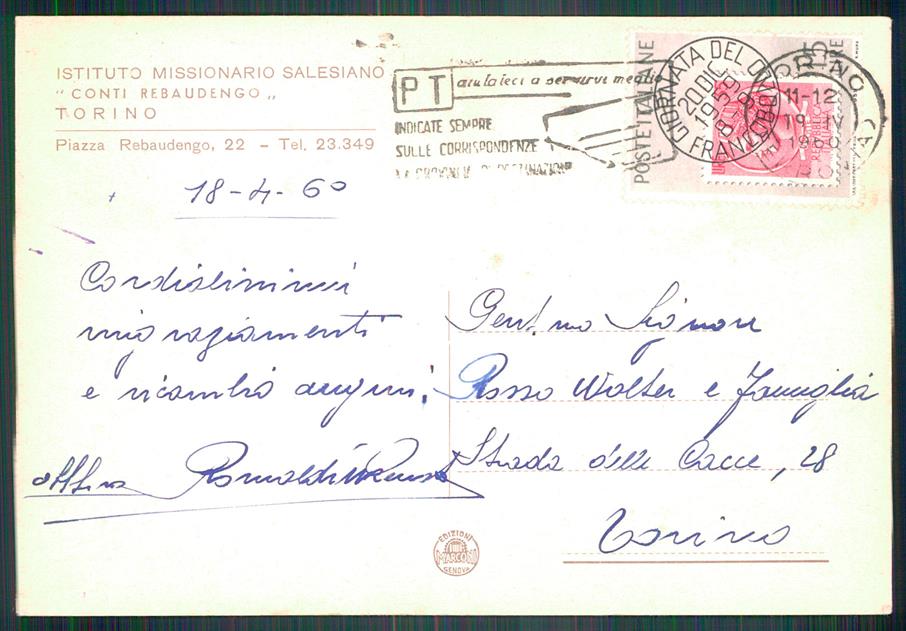 ISTITUTO MISSIONARIO SALESIANO
" CONTI REBAUDENGO "
TORINO
Piazza Rebaudengo, 22 - Tel. 23.349
PT
aiutateci a servirvi meglio
INDICATE SEMPRE
SULLE CORRISPONDENZE
POSTE ITALIANE
GIORNATA DEL FRANCOBOLLO
20 DIC.
1959
TORINO
11-12
19 IV
1960
18-4-60
Cordialissimi
ringraziamenti
e ricambia auguri.
Gent.mo Signor
Rosso Walter e Famiglia
Strada delle Cacce, 28
Torino
EDIZIONI
MARCONI
GENOVA